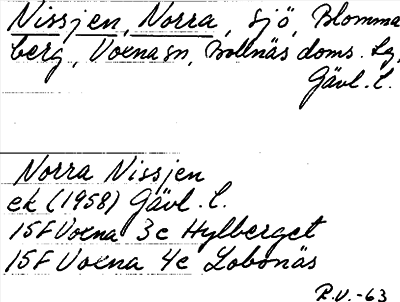 Nissjen, Norra, sjö, Blomma
berg, Voxna sn, Bollnäs doms. lg,
Gävl. l.
Norra Nissjen
ek (1958) Gävl. l.
15F Voxna 3c Hylberget
15F Voxna 4c Lobonäs
R.V. -63